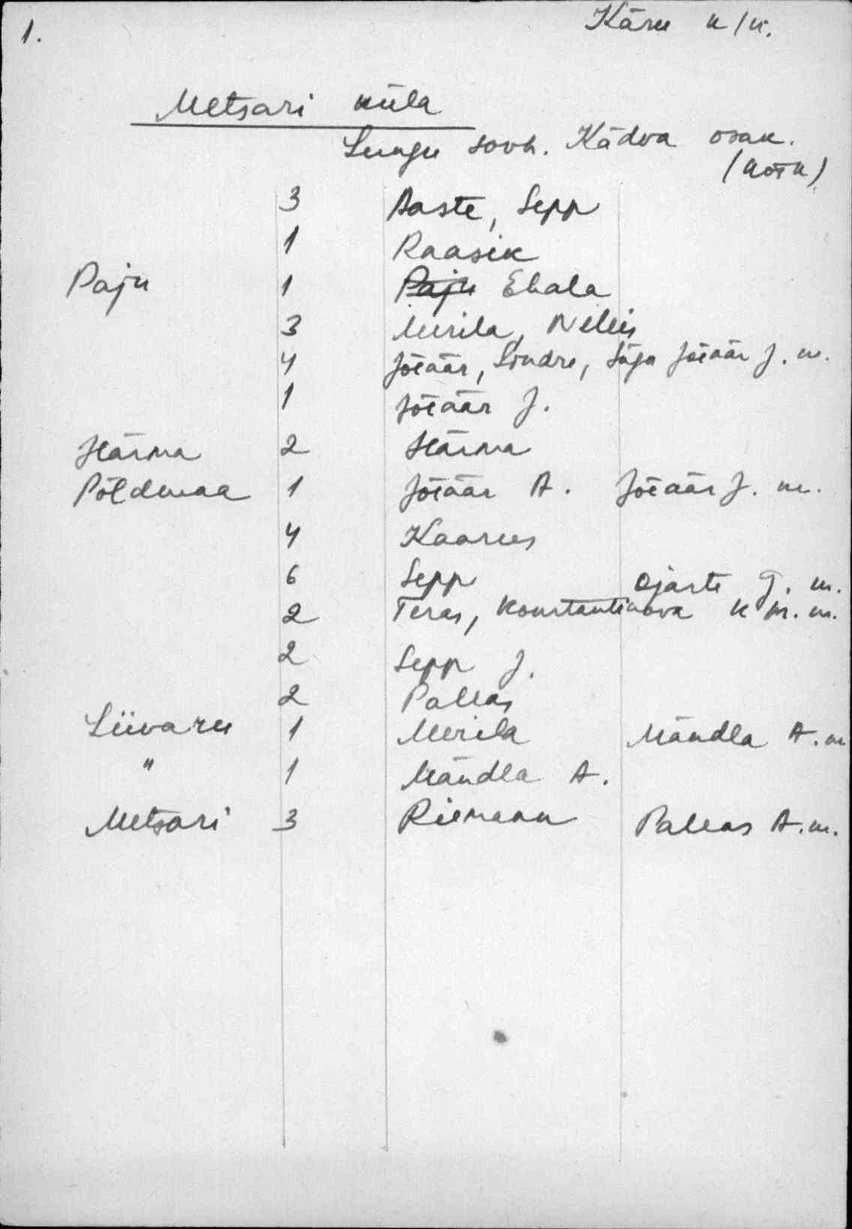 1. Käru k/n.
Metsari küla
Lungu sovh. Kädva osak.
3 Aaste, Sepp
1 Raasik
Paju 1 Paju Ehala
3 Merila,
4 Jõeäär, Jõeäär J. m.
1 Jõeäär J.
Härma 2 Härma
Põldmaa 1 Jõeäär A. Jõeäär J. m.
4 Kaarees
6 Sepp Ojaste m.
2 Teras, Konstantinova m.
2 Sepp J.
2 Pallas
Liivaru 1 Merila Mändla A. m
" 1 Mändla A.
Metsari 3 Riemann Pallas A. m.